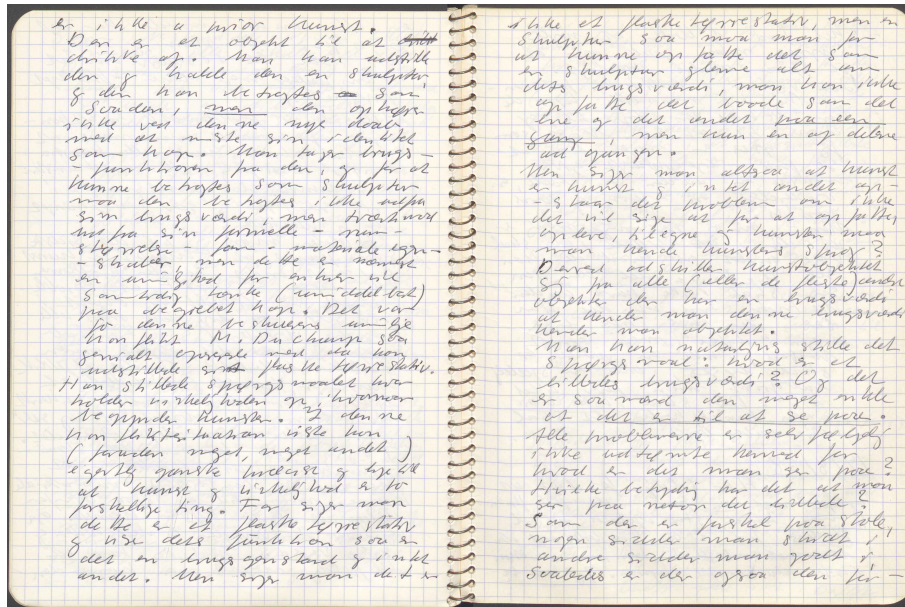 er ikke a prior kunst.
Den er et objekt til at
drikke af. Man kan udstille
den og kalde den en skulptur
og den kan betragtes som
saadan, men den ophører
ikke ved denne nye daab
med at miste sin identitet
som kop. Man tager brugs-
-funktionen fra den, og for at
kunne betragtes som skulptur
maa den betragtes ikke udfra
sin brugsværdi, men tværtimod
ud fra sin formelle - rum -
størrelse - form - materiale egen-
-skaber, men dette er næmest
en umulighed for enhver vil
samtidig tænke (umiddelbart)
paa begrebet kop. Det var
jo denne beskuerens
konflikt M. Duchamp saa
genialt opererede med da han
udstillede sit flasketørrestativ.
Han stillede spørgsmaalet hvor
holder virkeligheden op, hvornaar
begynder kunsten. I denne
konfliktsituation viste han
(foruden meget, meget andet)
egentlig ganske præcist og
at kunst og virkelighed er to
forskellige ting. For siger man
dette er et flasketørrestativ
og vise dets funktion saa er
det en brugsgenstand og intet
andet. Men siger man det er
ikke et flasketørrestativ, men en
skulptur saa maa man for
at kunne opfatte det som
en skulptur glemme alt om
dets brugsværdi, man kan ikke
opfatte det baade som det
ene og det andet paa een
gang, men kun en af delene
ad gangen.
Men siger man altsaa at kunst
er kunst og intet andet op-
-staar det problem om ikke
det vil sige at for at opfatte,
opleve, tilegne sig kunsten maa
man kende kunstens sprog?
Derved adskiller kunstobjektet
sig fra alle (eller de fleste) andre
objekter der har en brugsværdi
at kender man denne brugsværdi
kender man objektet.
Man kan naturligvis stille det
spørgsmaal: hvad er et
billedes brugsværdi? Og det
er saamænd den meget enkle
at det er til at se paa.
Alle problemerne er selvfølgelig
ikke udtømte hermed for
hvad er det man ser paa?
Hvilke betydning har det at man
ser paa netop det billede?
Som der er forskel paa stole,
nogen sidder man skidt i,
andre sidder man godt i
Saaledes er der ogsaa den for-